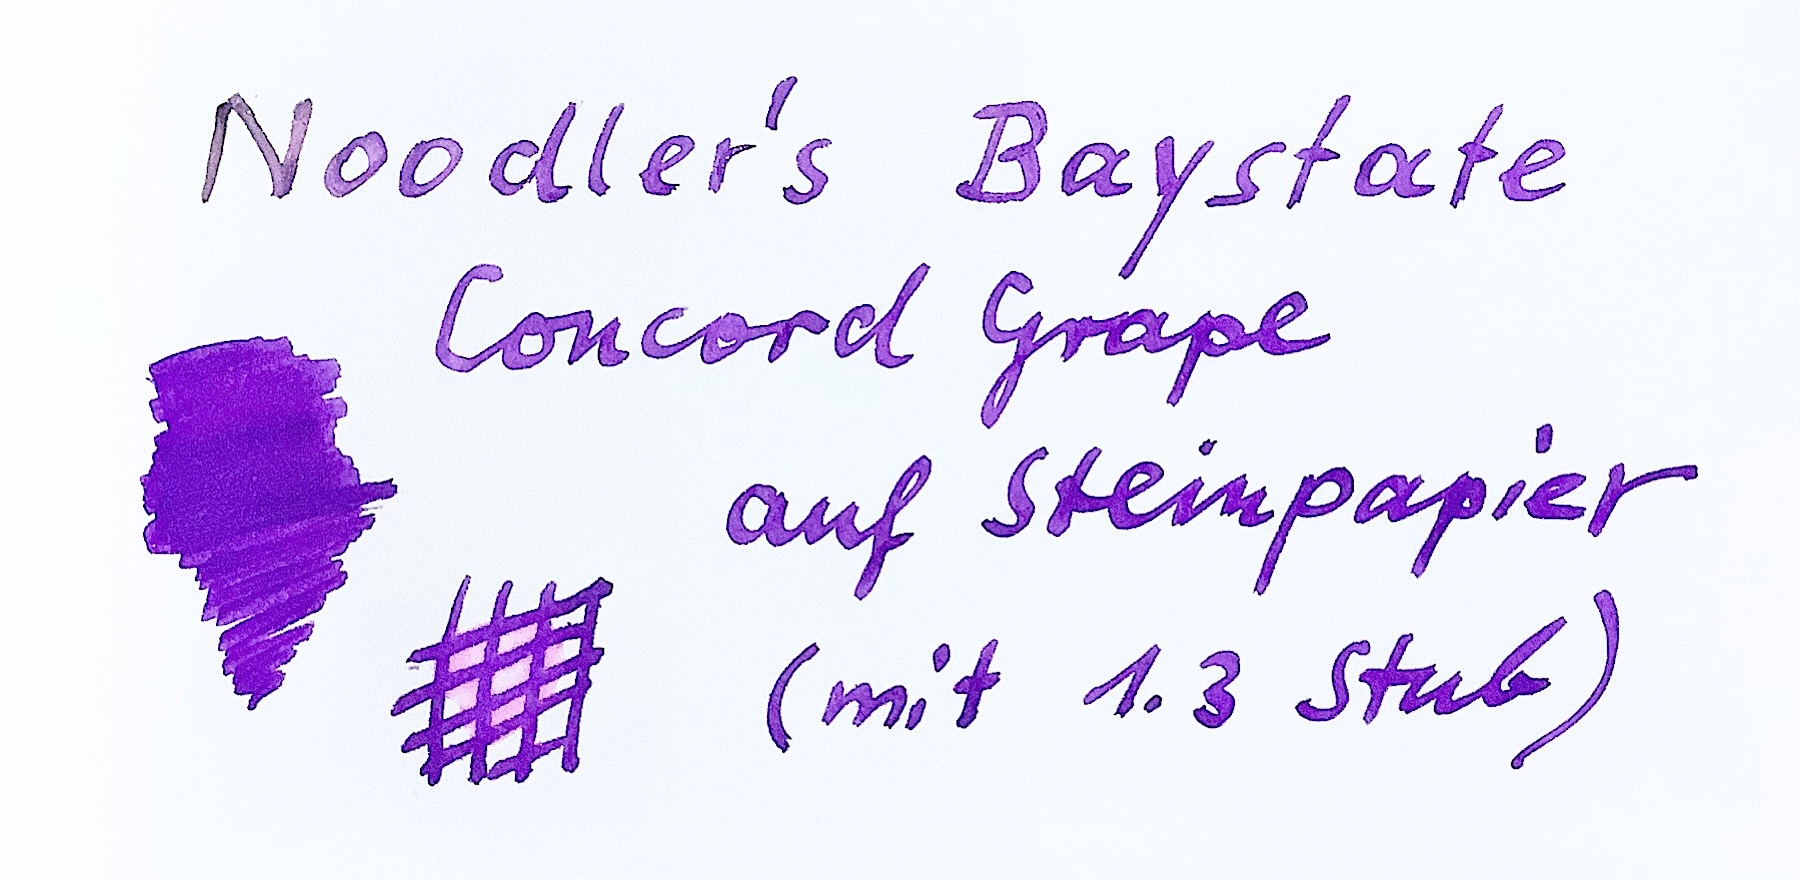 Noodler's Baystate
Concord Grape
auf Steinpapier
(mit 1.3 Stub)